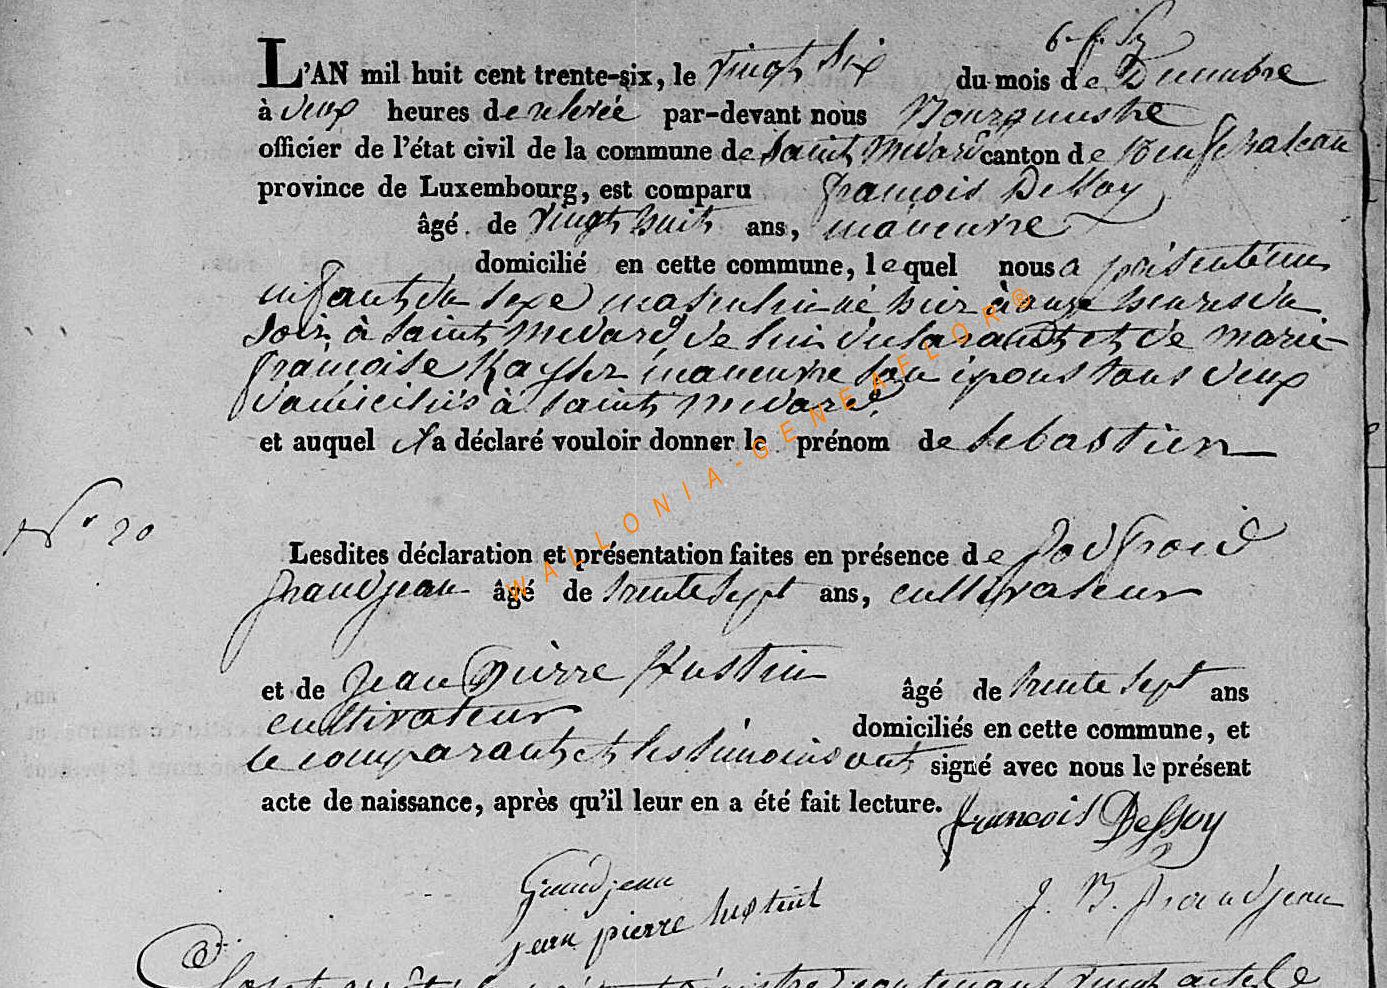 L'AN mil huit cent trente-six, le vingt six du mois de Decembre
à deux heures de relevée par-devant nous Bourgmestre
officier de l'état civil de la commune de Saint Medard canton de Neufchateau
province de Luxembourg, est comparu françois Dessoy
âgé de vingt huit ans, manœuvre
domicilié en cette commune, lequel nous a présenté un
enfant du sexe masculin né hier à onze heures du
soir à Saint Medard de lui déclarant et de marie
françoise Kayser manœuvre son épouse tous deux
domiciliés à Saint Medard.
et auquel il a déclaré vouloir donner le prénom de Sebastien
Nr 20
Lesdites déclaration et présentation faites en présence de Godfroid
Grandjean âgé de trente sept ans, cultivateur
et de Jean Pierre Hustin âgé de trente sept ans
cultivateur domiciliés en cette commune, et
le comparant et les témoins ont signé avec nous le présent
acte de naissance, après qu'il leur en a été fait lecture.
françois Dessoy
Grandjean
jean pierre hustin
J. B. Grandjean
WALLONIA-GENEAFLOR®